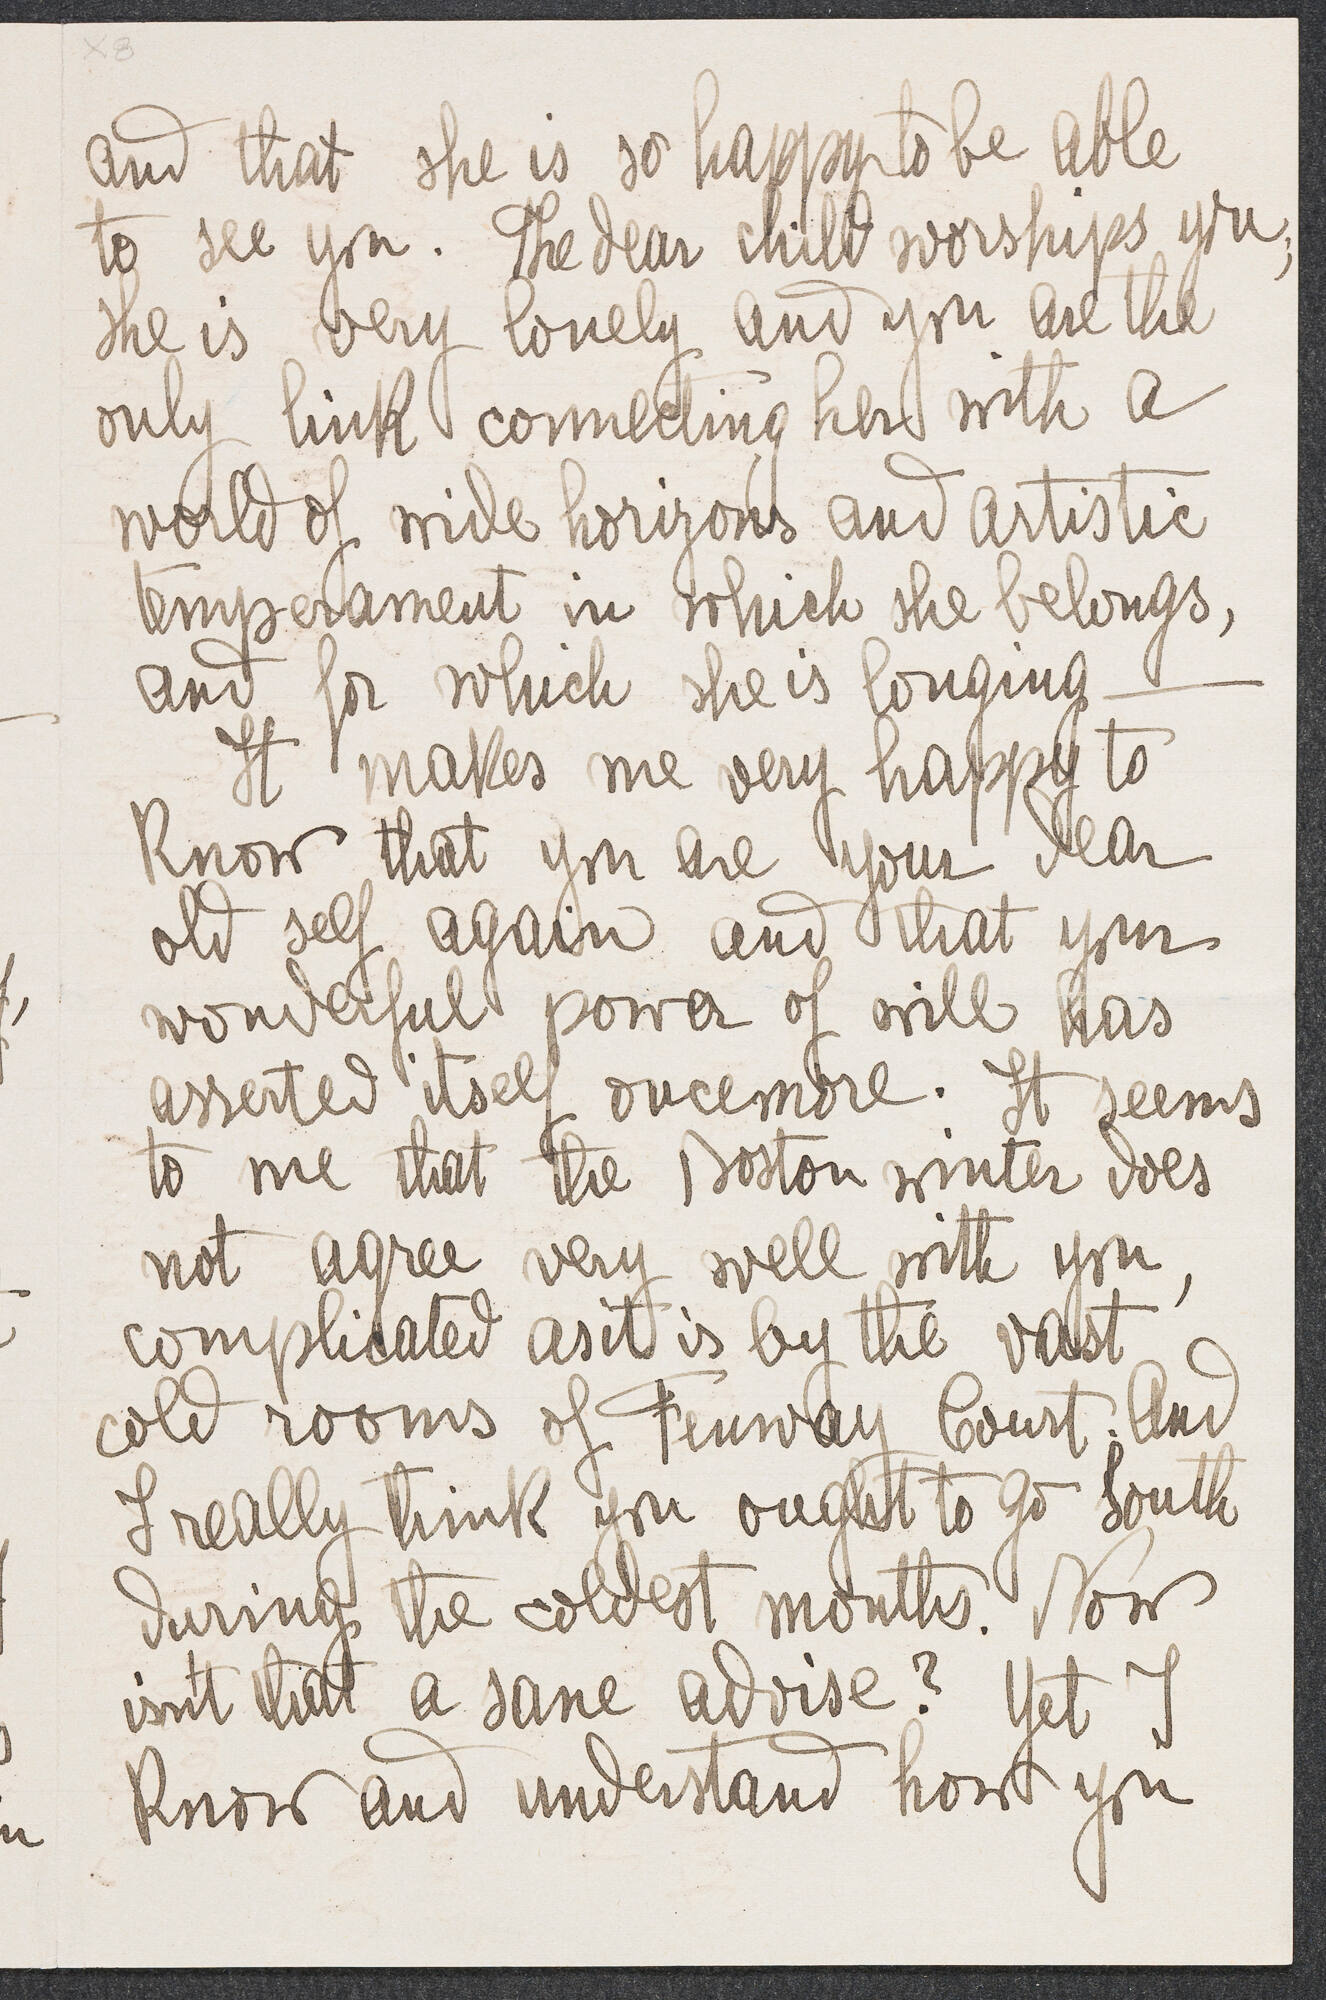 X8
and that she is so happy to be able
to see you. The dear child worships you;
she is very lonely and you are the
only link connecting her with a
world of wide horizons and artistic
temperament in which she belongs,
and for which she is longing —
It makes me very happy to
know that you are your dear
old self again and that your
wonderful power of will has
asserted itself once more. It seems
to me that the Boston winter does
not agree very well with you,
complicated as it is by the vast
cold rooms of Fenway Court. And
I really think you ought to go South
during the coldest months. Now
isn't that a sane advise? Yet I
know and understand how you